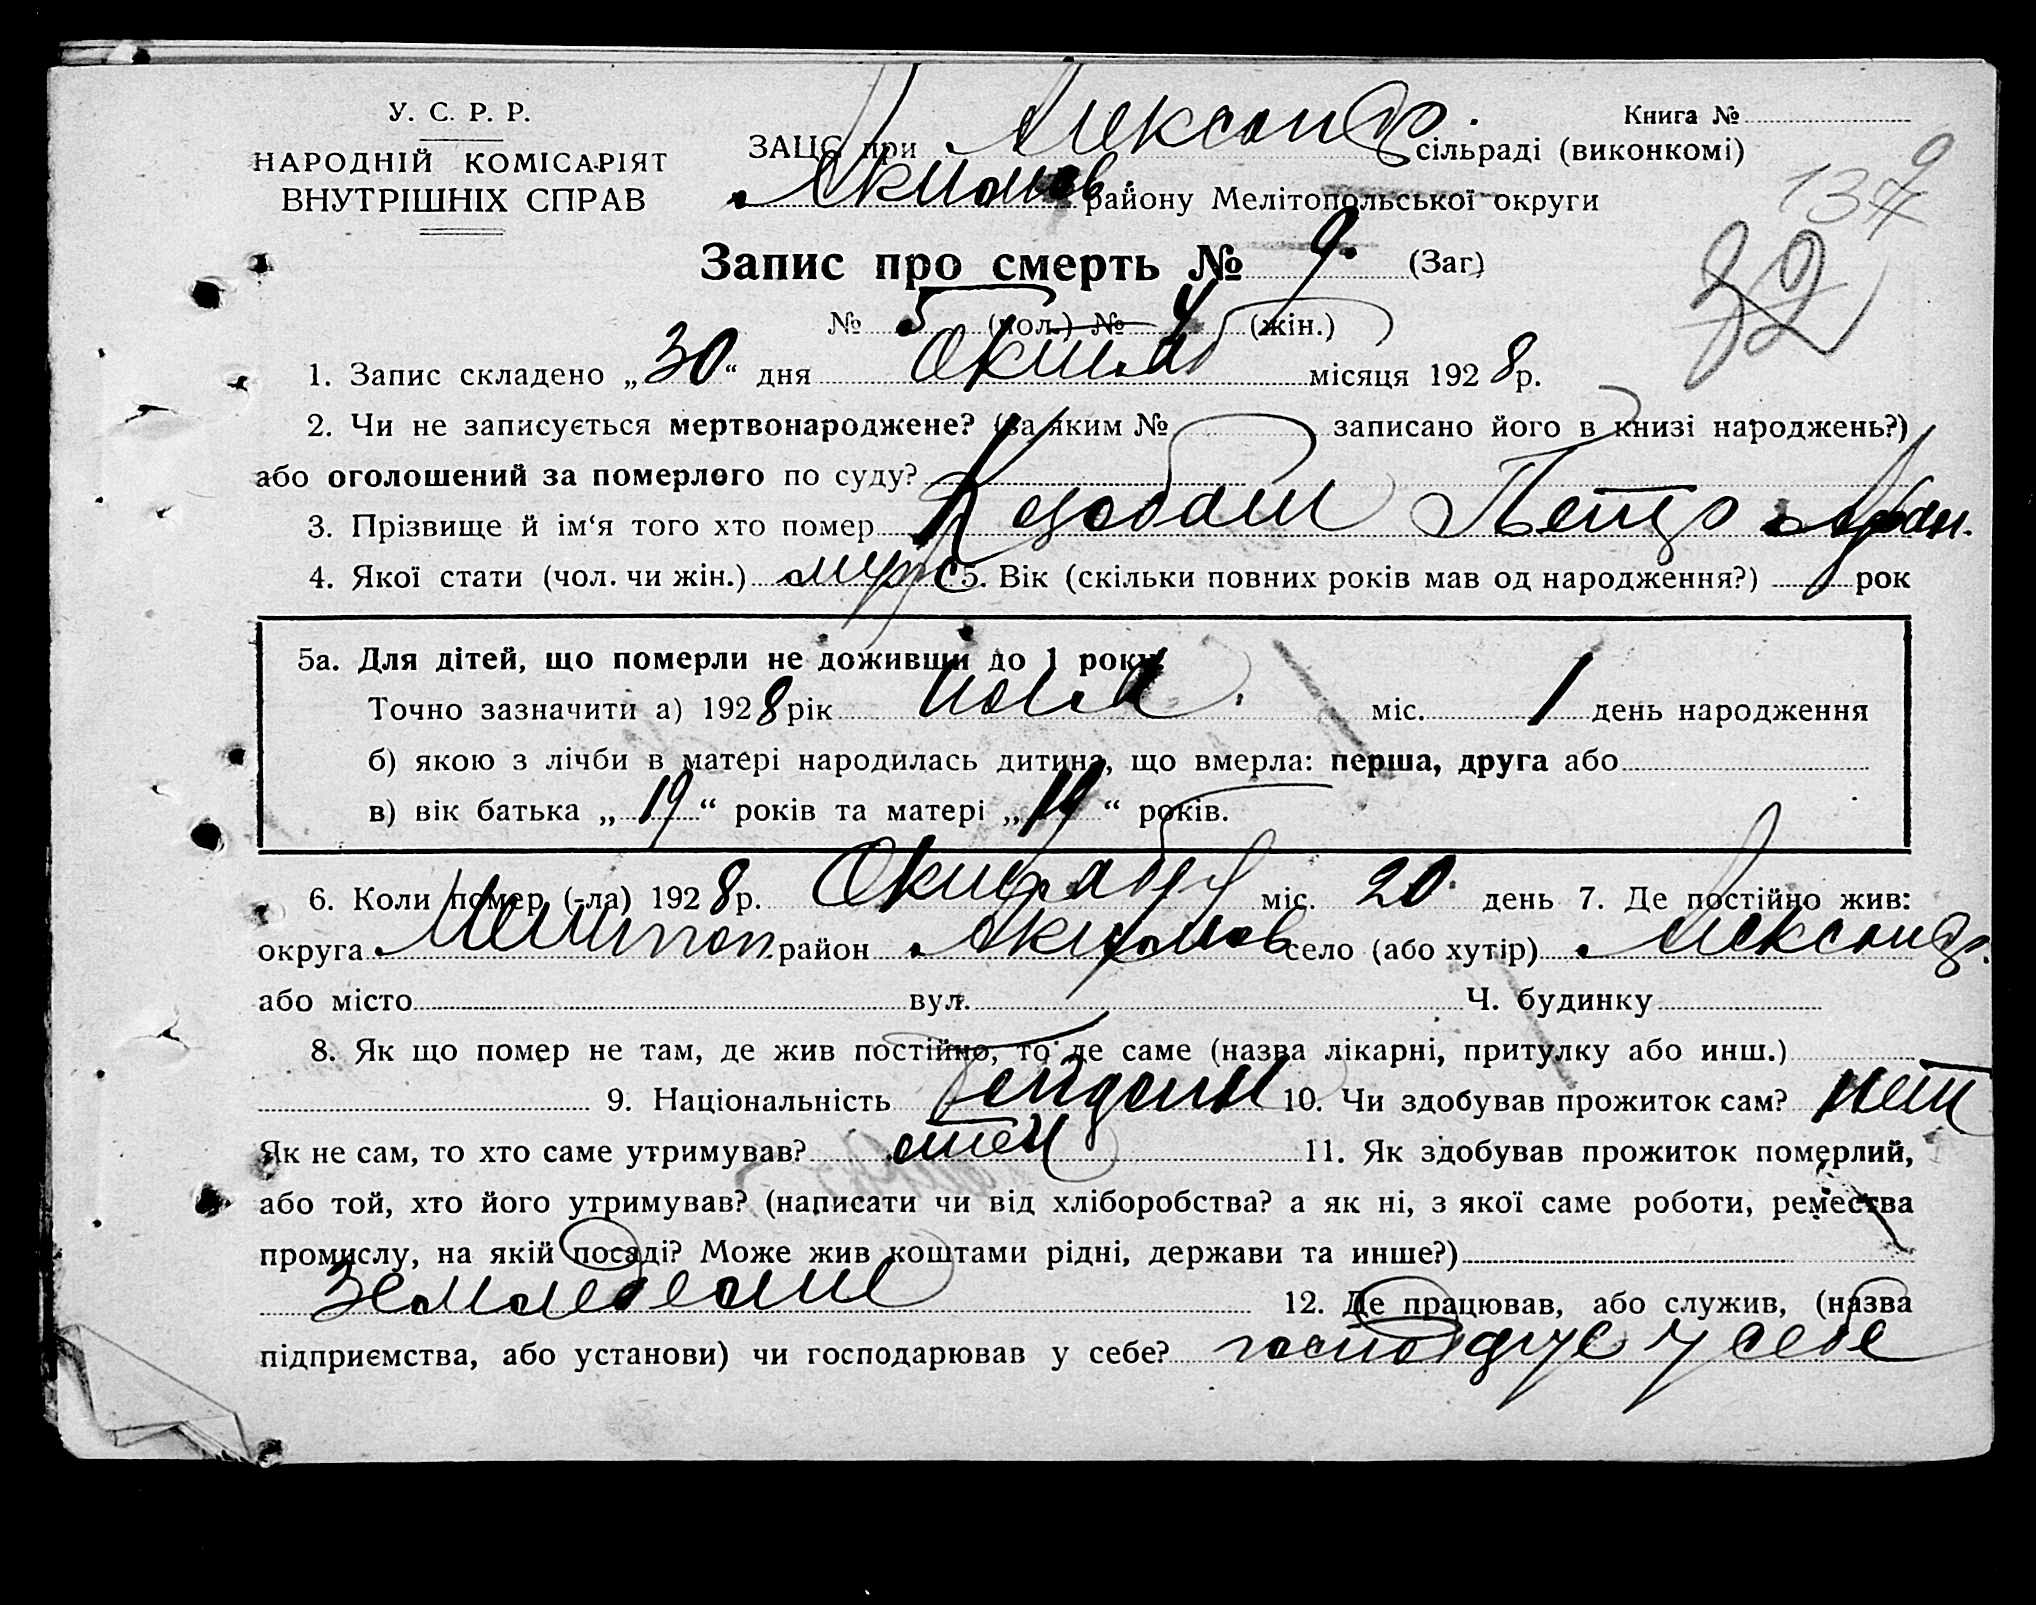 У. С. Р. Р.
НАРОДНІЙ КОМІСАРІЯТ
ВНУТРІШНІХ СПРАВ
Книга №
ЗАЦС при Александр. сільраді (виконкомі)
Акимов. району Мелітопольської округи
Запис про смерть № 9. (Заг)
№ 5 (чол.) № 4 (жін.)
1. Запис складено „30“ дня Октяб місяця 1928р.
2. Чи не записується мертвонароджене? (за яким № записано його в книзі народжень?)
або оголошений за померлого по суду?
3. Прізвище й ім‘я того хто помер Петр
4. Якої стати (чол. чи жін.) муж 5. Вік (скільки повних років мав од народження?) рок
5а. Для дітей, що померли не доживши до 1 року.
Точно зазначити а) 1928рік міс. 1 день народження
б) якою з лічби в матері народилась дитина, що вмерла: перша, друга або
в) вік батька „19“ років та матері „19“ років.
6. Коли помер (-ла) 1928р. Октября міс. 20 день 7. Де постійно жив:
округа Мелитоп район Акимов село (або хутір) Александр.
або місто вул. Ч. будинку
8. Як що помер не там, де жив постійно, то де саме (назва лікарні, притулку або инш.)
9. Національність 10. Чи здобував прожиток сам? нет
Як не сам, то хто саме утримував? отец 11. Як здобував прожиток померлий,
або той, хто його утримував? (написати чи від хліборобства? а як ні, з якої саме роботи, ремества
промислу, на якій посаді? Може жив коштами рідні, держави та инше?)
Земледелие 12. Де працював, або служив, (назва
підприємства, або установи) чи господарював у себе? у себе